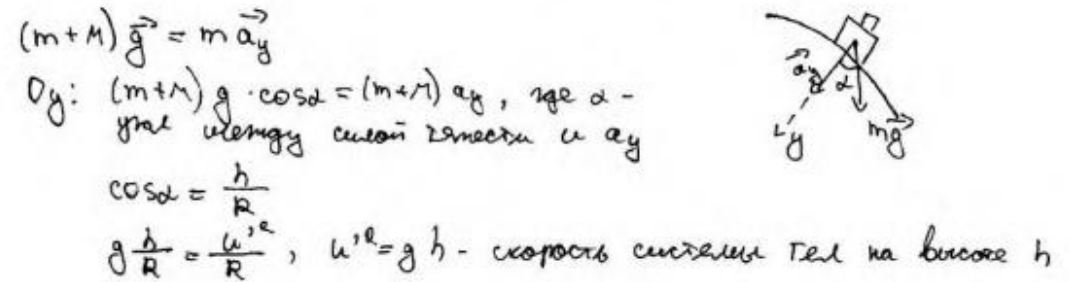 (m+M) g⃗ = m a⃗y
Oy: (m+M) g · cosα = (m+M) ay, где α -
угол между силой тяжести и ay
cosα = h/R
g h/R = u'²/R, u'² = g h - скорость системы тел на высоте h
a⃗y
α
y
mg⃗